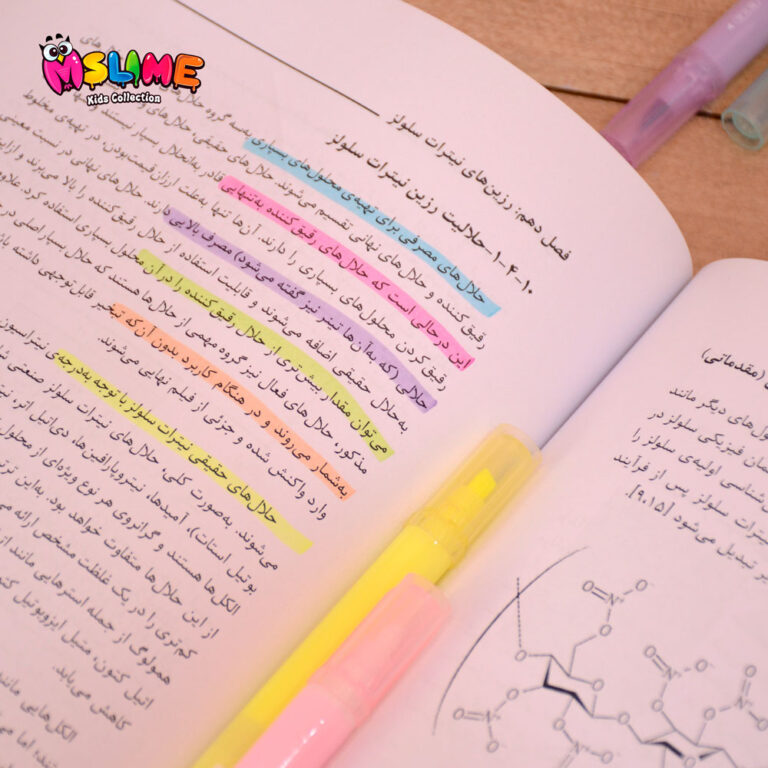 MSLIME
Kids Collection
فصل دهم: رزین‌های نیترات سلولز
۱۰-۴-۱- حلالیت رزین نیترات سلولز
حلال‌های مصرفی برای تهیه‌ی محلول‌های بسپاری به سه گروه حلال
رقیق‌کننده و حلال‌های نهائی تقسیم می‌شوند. حلال‌های حقیقی، حلال‌های
این درحالی است که حلال‌های رقیق‌کننده به‌تنهایی قادر به انحلال بسپار نیستند
رقیق کردن محلول‌های بسپاری را دارند. آن‌ها تنها به‌علت ارزان‌قیمت‌بودن، در تهیه‌ی مخلوط
حلالی (که به آن‌ها تینر نیز گفته می‌شود) مصرف بالایی دارند. حلال‌های نهائی در نسبت معینی
به‌حلال حقیقی اضافه می‌شوند و قابلیت استفاده از حلال رقیق‌کننده را بالا می‌برند و
می‌توان مقدار بیش‌تری از حلال رقیق‌کننده را در آن محلول بسپاری استفاده کرد. علاوه
مذکور، حلال‌های فعال نیز گروه مهمی از حلال‌ها هستند که حلال بسپار اصلی
به‌شمار می‌روند و در هنگام کاربرد بدون آن‌که تبخیر قابل توجهی داشته
وارد واکنش شده و جزئی از فیلم نهایی می‌شوند.
حلال‌های حقیقی نیترات سلولز با توجه به‌درجه‌ی نیتراسیون
می‌شوند. به‌صورت کلی، حلال‌های نیترات سلولز صنعتی
بوتیل استات)، آمیدها، نیتروپارافین‌ها، دی‌اتیل اتر،
الکل‌ها هستند و گرانروی هر نوع ویژه‌ای از محلول
از این حلال‌ها متفاوت خواهد بود. به‌این
کم‌تری را در یک غلظت مشخص ارائه
همولوگ از جمله استرهایی مانند
اتیل کتون، متیل ایزوبوتیل
کاهش می‌یابد.
الکل‌هایی مانند
نیستند، اما
(مقدماتی)
های دیگر مانند
فیزیکی سلولز در
شناسی اولیه‌ی سلولز را
نیترات سلولز پس از فرآیند
تبدیل می‌شود [۹،۱۵].